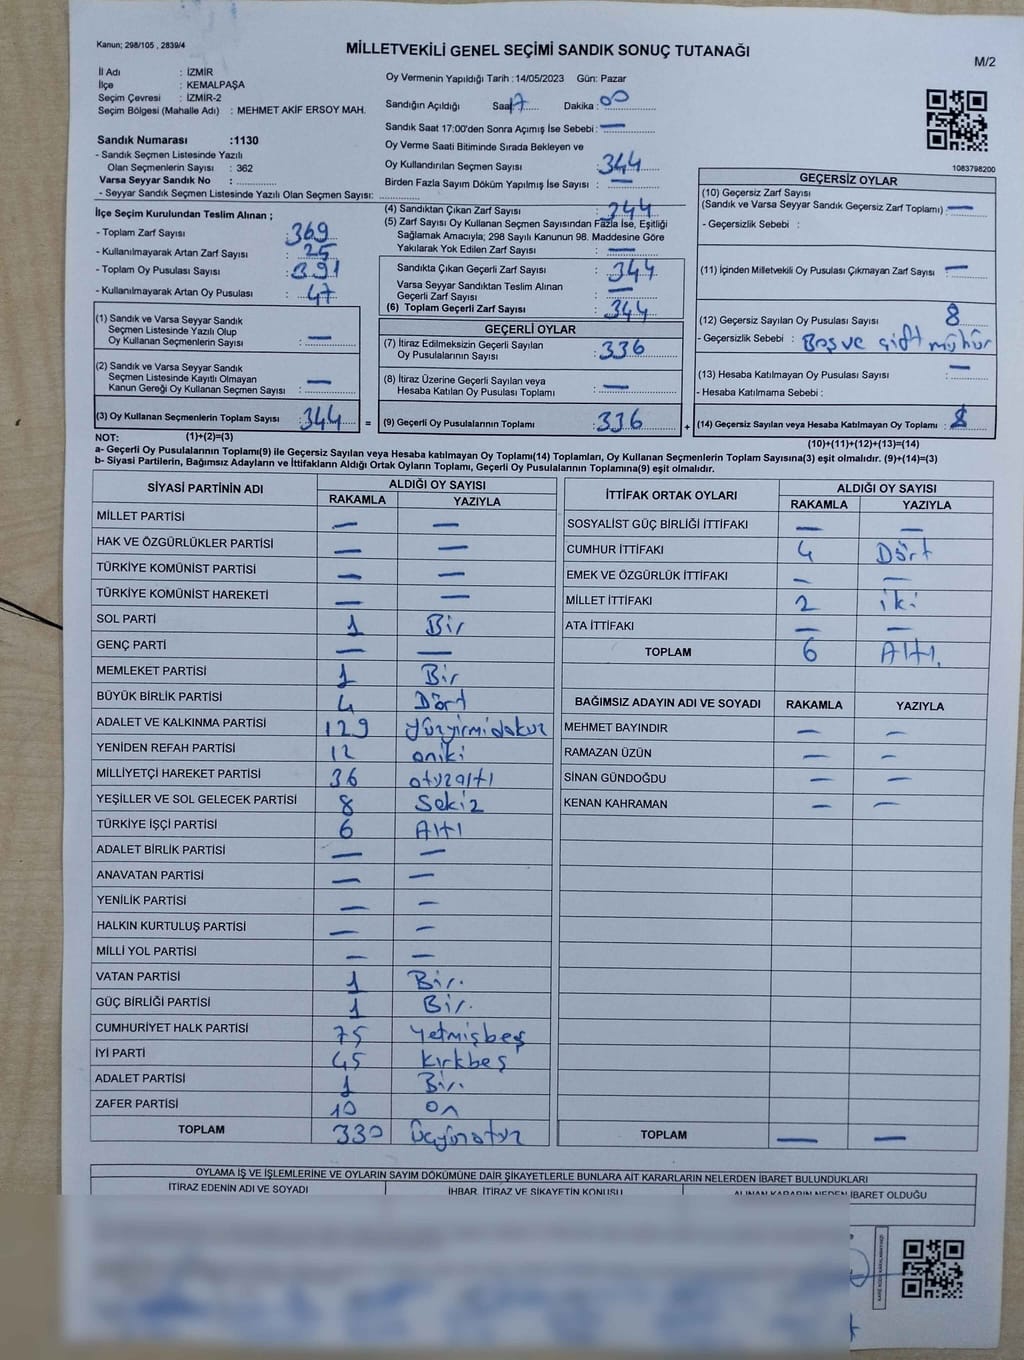 Kanun; 298/105 , 2839/4
MİLLETVEKİLİ GENEL SEÇİMİ SANDIK SONUÇ TUTANAĞI
M/2
İl Adı : İZMİR
İlçe : KEMALPAŞA
Seçim Çevresi : İZMİR-2
Seçim Bölgesi (Mahalle Adı) : MEHMET AKİF ERSOY MAH.
Sandık Numarası :1130
- Sandık Seçmen Listesinde Yazılı
Olan Seçmenlerin Sayısı : 362
Varsa Seyyar Sandık No :
- Seyyar Sandık Seçmen Listesinde Yazılı Olan Seçmen Sayısı:
Oy Vermenin Yapıldığı Tarih :14/05/2023 Gün: Pazar
Sandığın Açıldığı Saat 17 Dakika : 00
Sandık Saat 17:00'den Sonra Açımış İse Sebebi : —
Oy Verme Saati Bitiminde Sırada Bekleyen ve
Oy Kullandırılan Seçmen Sayısı : 344
Birden Fazla Sayım Döküm Yapılmış İse Sayısı : —
1083798200
İlçe Seçim Kurulundan Teslim Alınan ;
- Toplam Zarf Sayısı : 369
- Kullanılmayarak Artan Zarf Sayısı : 25
- Toplam Oy Pusulası Sayısı : 391
- Kullanılmayarak Artan Oy Pusulası : 47
(1) Sandık ve Varsa Seyyar Sandık
Seçmen Listesinde Yazılı Olup
Oy Kullanan Seçmenlerin Sayısı : —
(2) Sandık ve Varsa Seyyar Sandık
Seçmen Listesinde Kayıtlı Olmayan
Kanun Gereği Oy Kullanan Seçmen Sayısı : —
(3) Oy Kullanan Seçmenlerin Toplam Sayısı : 344
(1)+(2)=(3)
(4) Sandıktan Çıkan Zarf Sayısı : 344
(5) Zarf Sayısı Oy Kullanan Seçmen Sayısından Fazla İse, Eşitliği
Sağlamak Amacıyla; 298 Sayılı Kanunun 98. Maddesine Göre
Yakılarak Yok Edilen Zarf Sayısı : —
Sandıkta Çıkan Geçerli Zarf Sayısı : 344
Varsa Seyyar Sandıktan Teslim Alınan
Geçerli Zarf Sayısı : —
(6) Toplam Geçerli Zarf Sayısı : 344
GEÇERLİ OYLAR
(7) İtiraz Edilmeksizin Geçerli Sayılan
Oy Pusulalarının Sayısı : 336
(8) İtiraz Üzerine Geçerli Sayılan veya
Hesaba Katılan Oy Pusulası Toplamı : —
= (9) Geçerli Oy Pusulalarının Toplamı : 336
GEÇERSİZ OYLAR
(10) Geçersiz Zarf Sayısı
(Sandık ve Varsa Seyyar Sandık Geçersiz Zarf Toplamı) : —
- Geçersizlik Sebebi :
(11) İçinden Milletvekili Oy Pusulası Çıkmayan Zarf Sayısı : —
(12) Geçersiz Sayılan Oy Pusulası Sayısı : 8
- Geçersizlik Sebebi : Boş ve çift mühür
(13) Hesaba Katılmayan Oy Pusulası Sayısı : —
- Hesaba Katılmama Sebebi :
+ (14) Geçersiz Sayılan veya Hesaba Katılmayan Oy Toplamı : 8
(10)+(11)+(12)+(13)=(14)
NOT:
a- Geçerli Oy Pusulalarının Toplamı(9) ile Geçersiz Sayılan veya Hesaba katılmayan Oy Toplamı(14) Toplamları, Oy Kullanan Seçmenlerin Toplam Sayısına(3) eşit olmalıdır. (9)+(14)=(3)
b- Siyasi Partilerin, Bağımsız Adayların ve İttifakların Aldığı Ortak Oyların Toplamı, Geçerli Oy Pusulalarının Toplamına(9) eşit olmalıdır.
SİYASİ PARTİNİN ADI ALDIĞI OY SAYISI
RAKAMLA YAZIYLA
MİLLET PARTİSİ — —
HAK VE ÖZGÜRLÜKLER PARTİSİ — —
TÜRKİYE KOMÜNİST PARTİSİ — —
TÜRKİYE KOMÜNİST HAREKETİ — —
SOL PARTİ 1 Bir
GENÇ PARTİ — —
MEMLEKET PARTİSİ 1 Bir
BÜYÜK BİRLİK PARTİSİ 4 Dört
ADALET VE KALKINMA PARTİSİ 129 yüzyirmidokuz
YENİDEN REFAH PARTİSİ 12 oniki
MİLLİYETÇİ HAREKET PARTİSİ 36 otuzaltı
YEŞİLLER VE SOL GELECEK PARTİSİ 8 Sekiz
TÜRKİYE İŞÇİ PARTİSİ 6 Altı
ADALET BİRLİK PARTİSİ — —
ANAVATAN PARTİSİ — —
YENİLİK PARTİSİ — —
HALKIN KURTULUŞ PARTİSİ — —
MİLLİ YOL PARTİSİ — —
VATAN PARTİSİ 1 Bir.
GÜÇ BİRLİĞİ PARTİSİ 1 Bir.
CUMHURİYET HALK PARTİSİ 75 Yetmişbeş
İYİ PARTİ 45 Kırkbeş
ADALET PARTİSİ 1 Bir.
ZAFER PARTİSİ 10 On
TOPLAM 330 Üçyüzotuz
İTTİFAK ORTAK OYLARI ALDIĞI OY SAYISI
RAKAMLA YAZIYLA
SOSYALİST GÜÇ BİRLİĞİ İTTİFAKI — —
CUMHUR İTTİFAKI 4 Dört
EMEK VE ÖZGÜRLÜK İTTİFAKI — —
MİLLET İTTİFAKI 2 iki
ATA İTTİFAKI — —
TOPLAM 6 Altı.
BAĞIMSIZ ADAYIN ADI VE SOYADI RAKAMLA YAZIYLA
MEHMET BAYINDIR — —
RAMAZAN ÜZÜN — —
SİNAN GÜNDOĞDU — —
KENAN KAHRAMAN — —
TOPLAM — —
OYLAMA İŞ VE İŞLEMLERİNE VE OYLARIN SAYIM DÖKÜMÜNE DAİR ŞİKAYETLERLE BUNLARA AİT KARARLARIN NELERDEN İBARET BULUNDUKLARI
İTİRAZ EDENİN ADI VE SOYADI İHBAR, İTİRAZ VE ŞİKAYETİN KONUSU ALINAN KARARIN NEDEN İBARET OLDUĞU